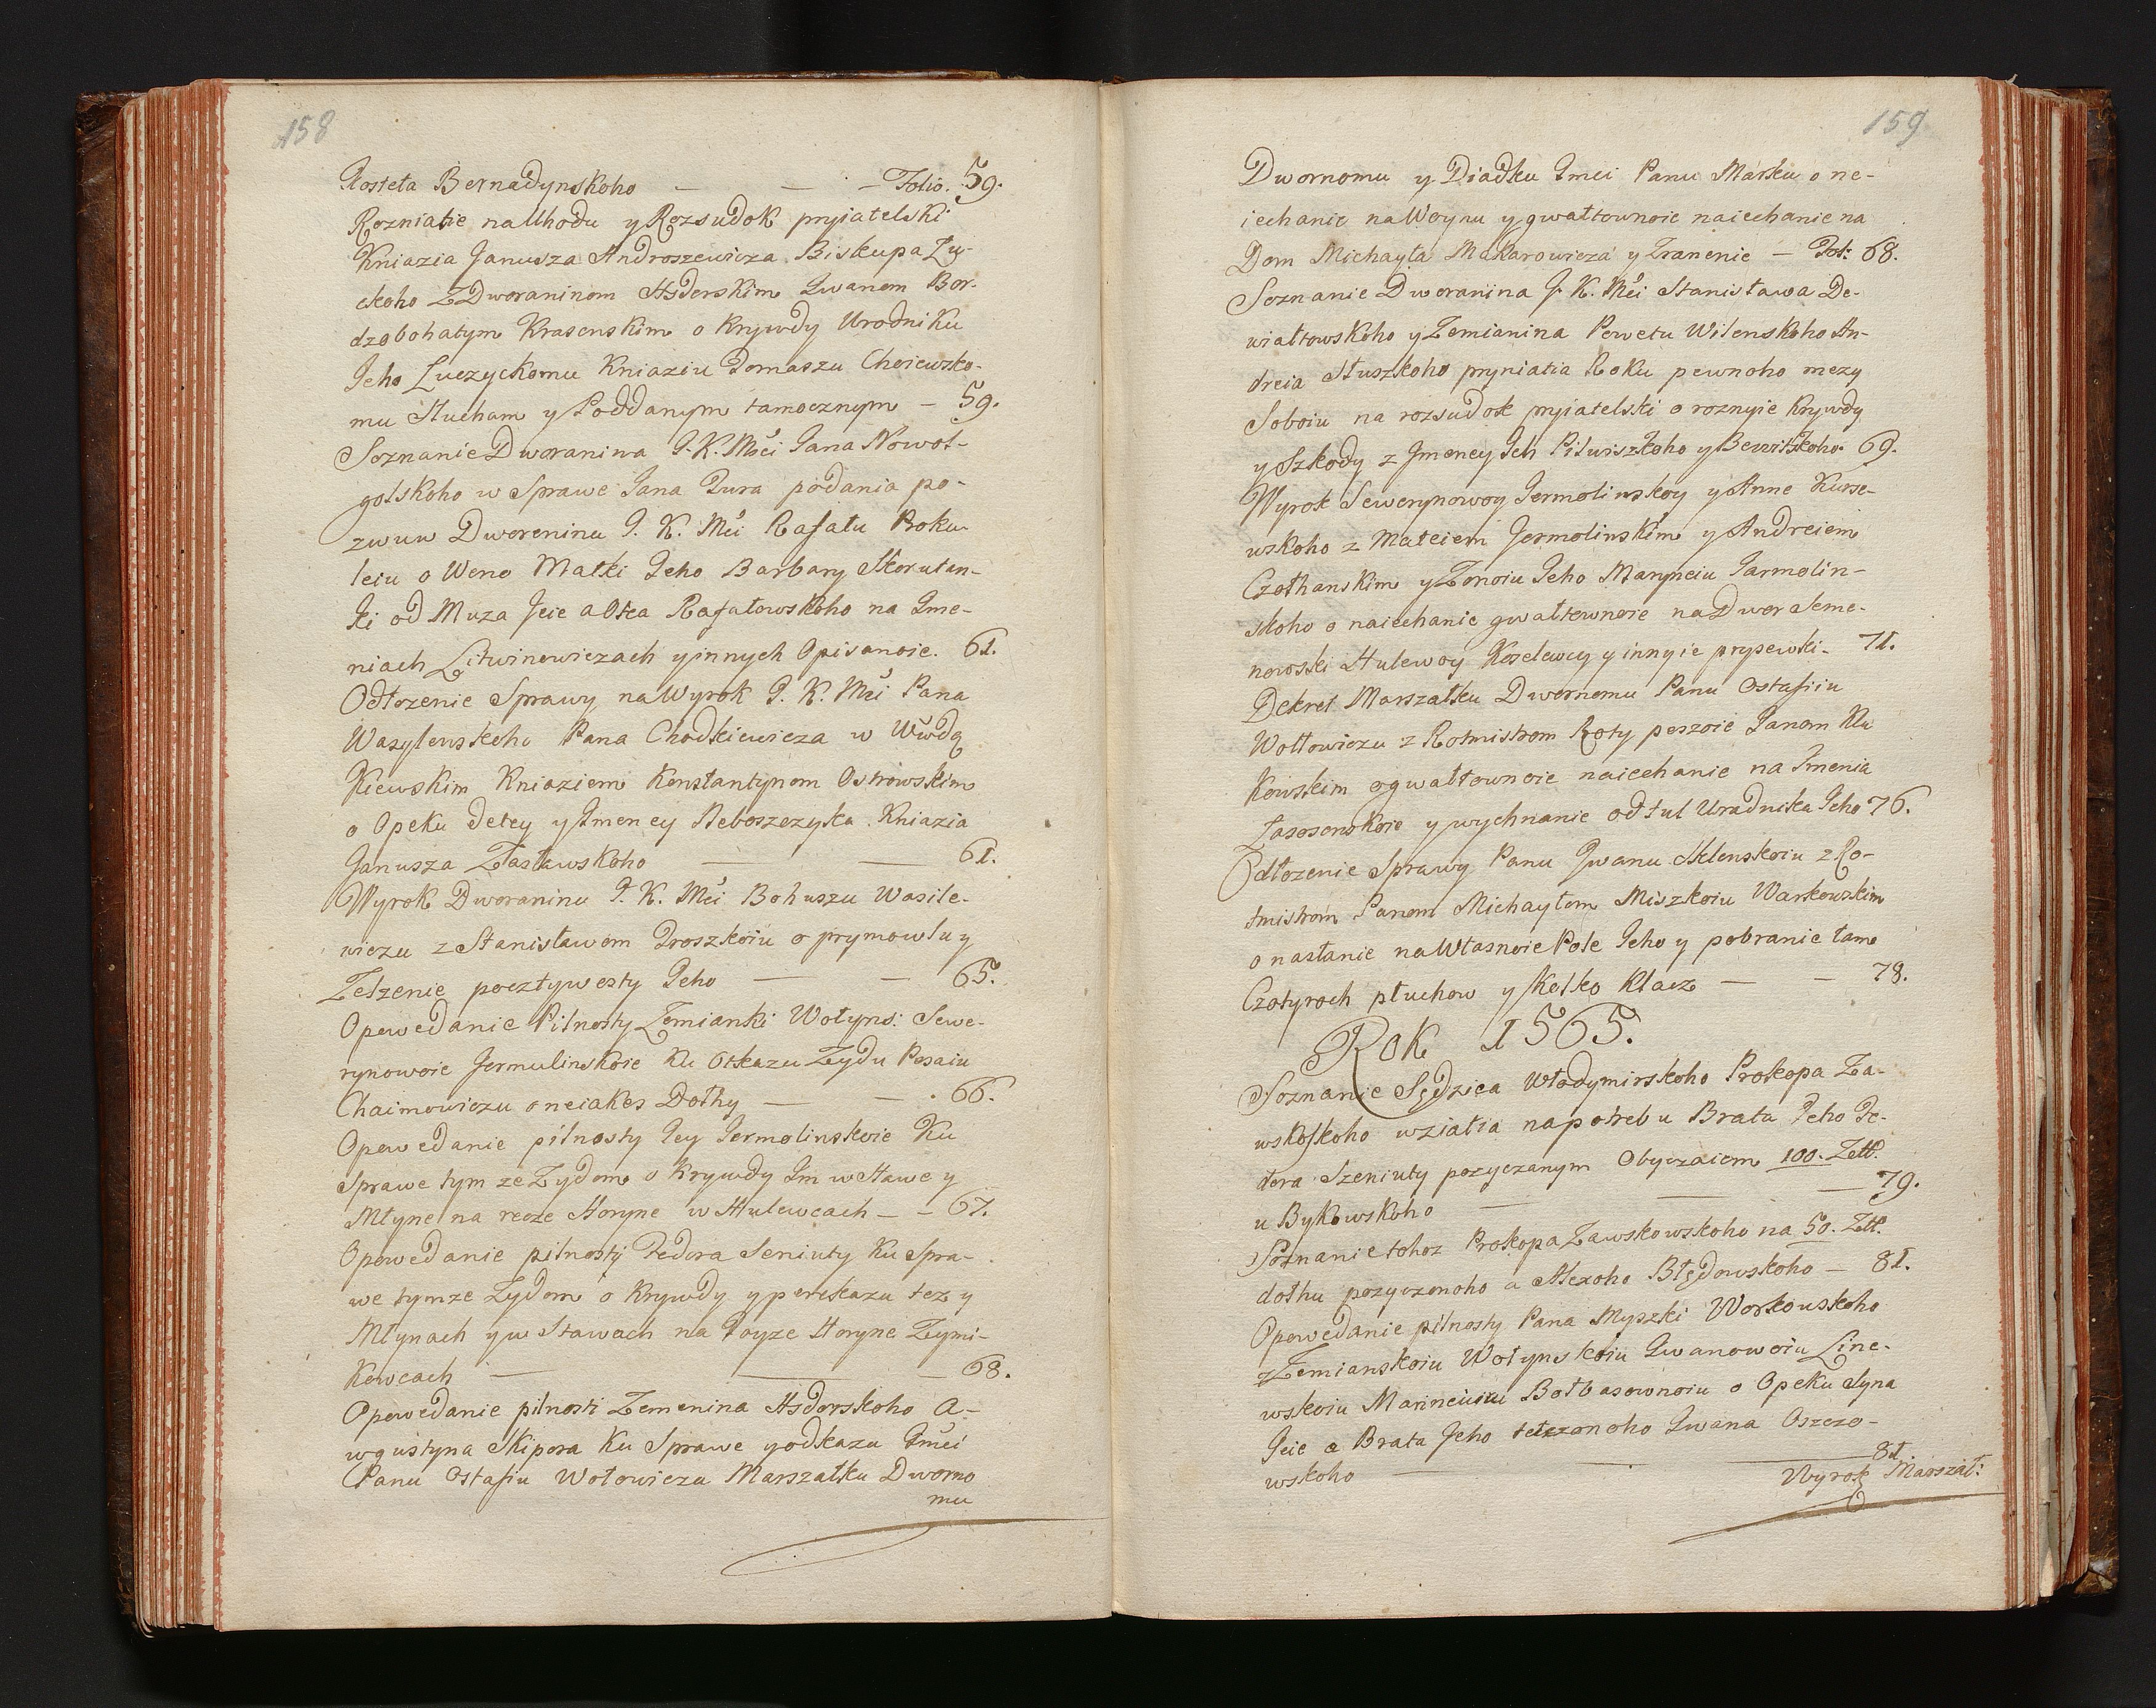 158
Kosteła Bernadynskoho — — — Folio. 59.
Rozniatie na Uhodu y Rozsudok pryiatelski
Kniazia Janusza Androszewicza Biskupa Łu-
ckoho Z Dworaninom Hsderskim Iwanom Bor-
dzobohatym Krasenskim o Krywdy Urodniku
Jeho Łuczyckomu Kniaziu Domaszu Choiewsko-
mu Słucham y Poddanym tamocznym — 59.
Soznanie Dworanina J. K. Mći Jana Nowol-
golskoho w Sprawe Jana Dura podania po-
zwuw Dworeninu J. K. Mći Rafału Roku-
leiu o Weno Matki Jeho Barbary Skorutan-
ki od Muza Jeie a Otca Rafałowskoho na Jme-
niach Litwinowiczach y innych Opisanoie. 61.
Odłozenie Sprawy na Wyrok J. K. Mći Pana
Wasylenskoho Pana Chodkiewicza w Wwdą
Kiewskim Kniaziem Konstantynom Ostrowskim
o Opeku detey y Jmeney Neboszczyka Kniazia
Janusza Zasławskoho — — 61.
Wyrok Dworaninu J. K. Mći Bohuszu Wasile-
wiczu z Stanisławom Droszkoiu o prymowku y
Zelzenie pocztywosty Jeho — — 65.
Opowedanie Pilnosty Zemianki Wołyns: Sewe-
rynowoie Jermulinskoie Ku Otkazu Zydu Pesaiu
Chaimowiczu o neiakos Dołhy — — . 66.
Opowedanie pilnosty Jey Jermolinskoie Ku
Sprawe tym ze Zydom o Krywdy Im w Stawe y
Młyne na recze Horyne w Hulewcach — — 67.
Opowedanie pilnosty Fedora Seniuty Ku Spra-
we tymze Zydom o Krywdy y perekazu tez y
Młynach y w Stawach na Toyze Horyne Zymi-
Kowcach — — — 68.
Opowedanie pilnosti Zemenina Hsdorskoho A-
wgustyna Skipora Ku Sprawe y odkazu Jmći
Panu Ostafiu Wołowiczu Marszałku Dworno
mu
159
Dwornomu y Diadku Jmći Panu Marku o ne-
iechanie na Woynu y gwałtownoie naiechanie na
Dom Michayła Makarowicza y Zranenie — Fol: 68.
Soznanie Dworanina J. K. Mći Stanisława De-
wiałtowskoho y Zemianina Powetu Wilenskoho An-
dreia Słuszkoho pryniatia Roku pewnoho mezy
Soboiu na rozsudok pryiatelski o roznyie Krywdy
y Szkody z Jmeney Jch Pilwiszkoho y Bewitskoho. 69.
Wyrok Sewerynowoy Jermolinskoy y Anne Kurse-
wskoho z Mateiem Jermolinskim y Andreiem
Czołhanskim y Zonoiu Jeho Maryneiu Jarmolin-
skoho o naiechanie gwałtownoie na Dwor Seme-
nowski Hulewoy Koselewcy y innyie prysewki. 71.
Dekret Marszałku Dwornomu Panu Ostafiiu
Wołłowiczu z Rotmistrom Roty peszoie Janom Klu
Kowskim o gwałtownoie naiechanie na Jmenia
Łasosenskoie y wychnanie odtul Uradnika Jeho 76.
Odłozenie Sprawy Panu Jwanu Sklenskoiu z Ro-
tmistrom Panom Michayłom Miszkoiu Warkowskim
o nasłanie na Własnoie Pole Jeho y pobranie tam
Czotyroch płuchow y Kolko Klacz — — 78.
Rok 1565.
Soznanie Sędzica Włodymirskoho Prokopa Za-
wskowskoho wziatia na potrebu Brata Jeho Fe-
dora Szeniuty pozyczanym Obyczaiem 100. Zełł.
u Bykowskoho — — — 79.
Soznanie tohoz Prokopa Zawskowskoho na 50. Zełł.
dołhu pozyczonoho u Alexoho Błędowskoho — 81.
Opowedanie pilnosty Pana Myszki Workowskoho
z Zemianskoiu Wołynskoiu Jwanowoiu Line-
wskoiu Marineiuiu Bołbasownoiu o Opeku Syna
Jeie a Brata Jeho tetczonoho Jwana Oszczo-
wskoho — — — 81.
Wyrok Marszał: